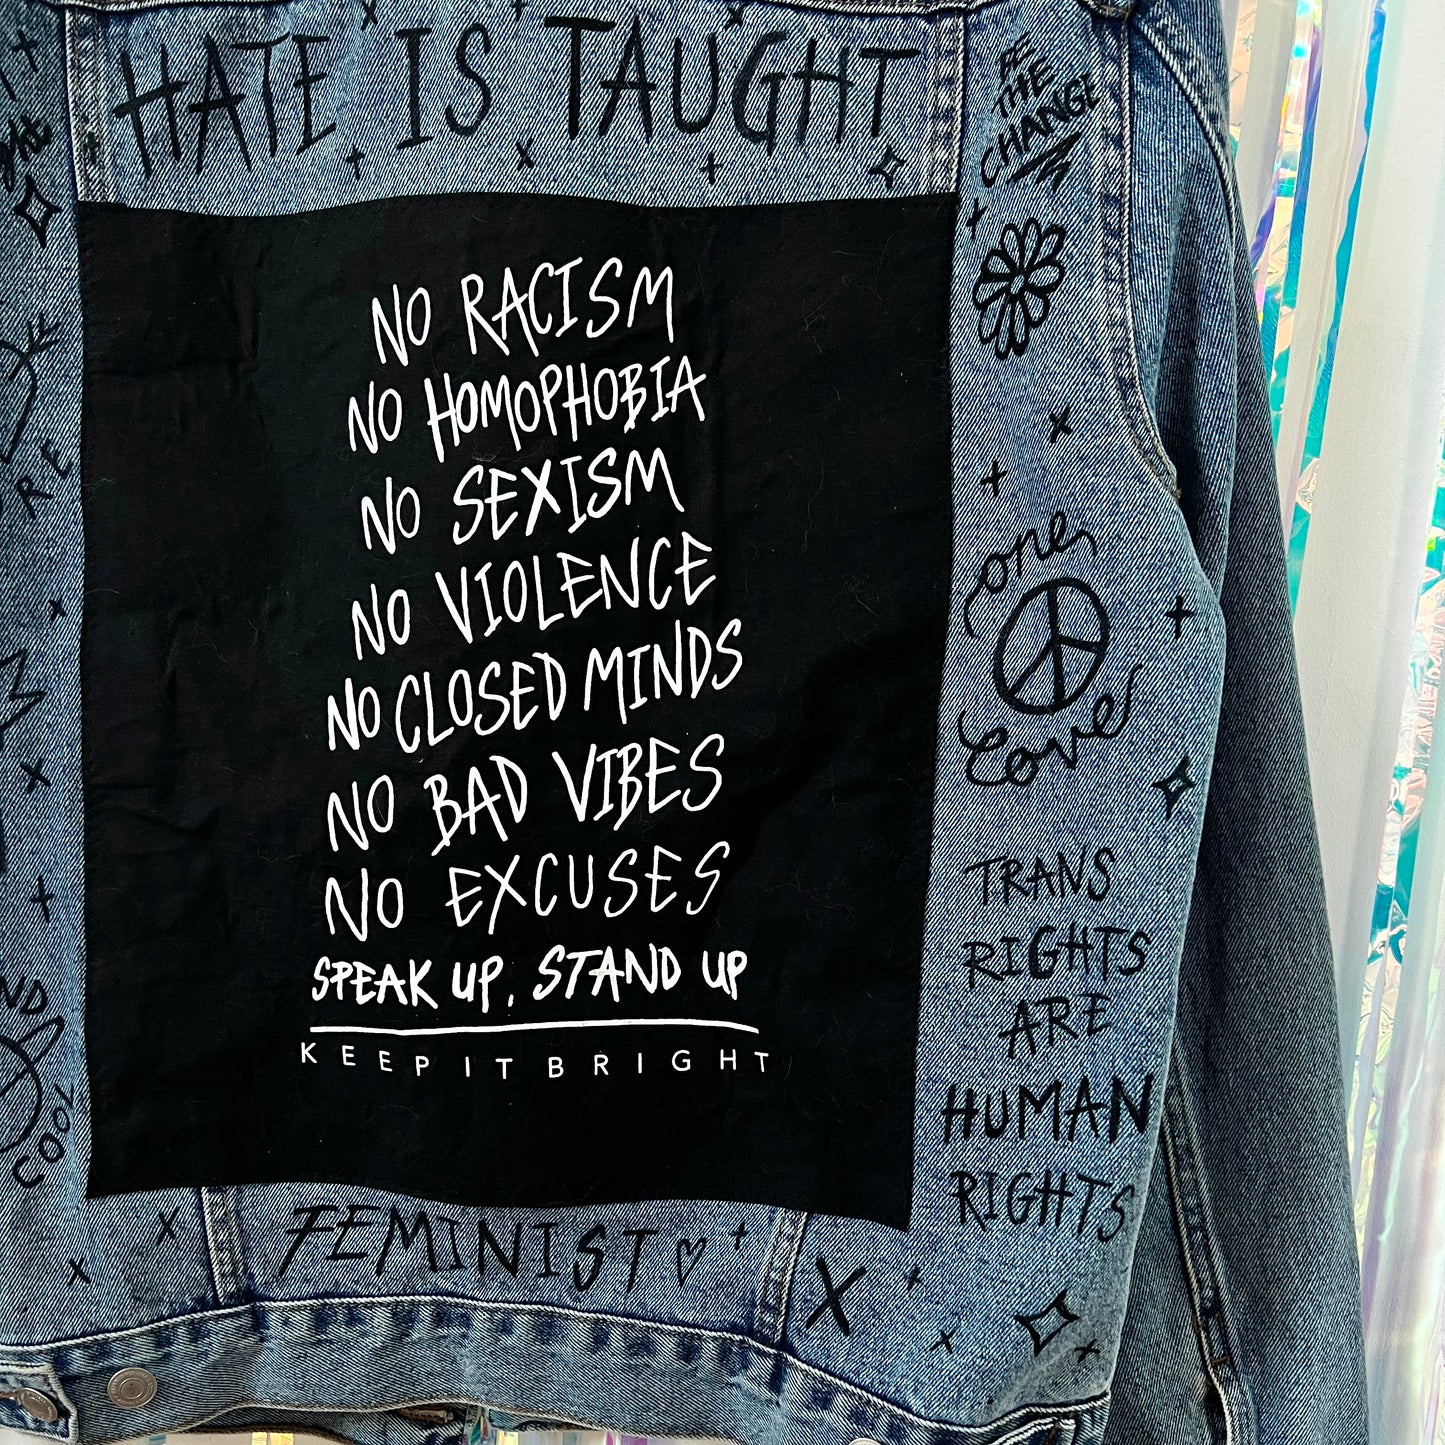 HATE IS TAUGHT
BE
THE
CHANGE
NO RACISM
NO HOMOPHOBIA
NO SEXISM
NO VIOLENCE
NO CLOSED MINDS
NO BAD VIBES
NO EXCUSES
SPEAK UP, STAND UP
KEEP IT BRIGHT
one
Love
TRANS
RIGHTS
ARE
HUMAN
RIGHTS
COOL
FEMINIST